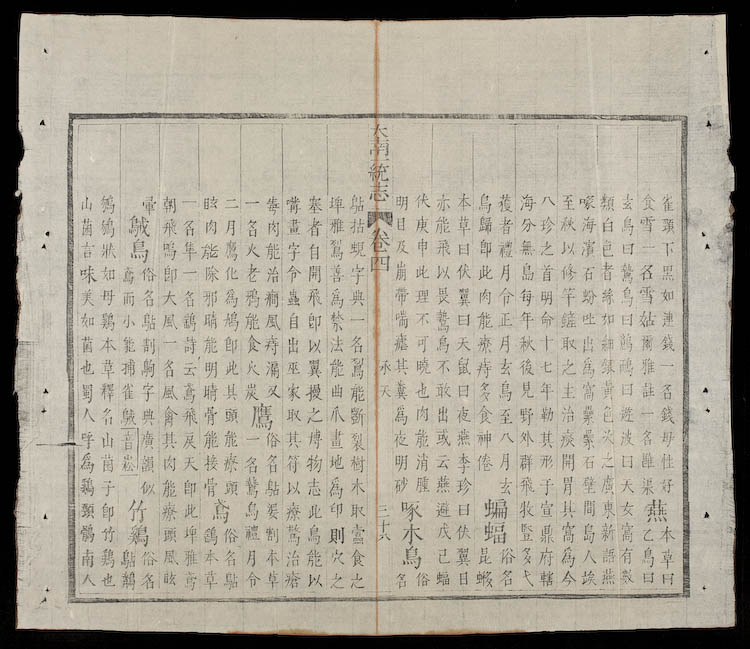 雀頸下黑如連錢一名錢母性好
食雪一名雪姑爾雅註一名䳭渠
燕
本草曰
乙鳥曰
玄鳥曰鷙鳥曰鷾鴯曰遊波曰天女窩有數
類白色者絲如細銀黃色次之廣東新語燕
海濱石蚡吐出為窩纍纍石壁間島人埃
至秋以修竿取之主治痰開胃其窩為今
八珍之首明命十七年勒其形于宣鼎府轄
海分無島每年秋後見野外群飛牧豎多弋
獲者禮月令正月玄鳥至八月玄
鳥歸卽此肉能療痔多食神倦
蝙蝠
俗名
昆蝬
本草曰伏翼曰天鼠曰夜燕李珍曰伏翼日
亦能飛以畏鷙鳥不敢出或云燕避戊己蝠
伏庚申此理不可曉也肉能清腫
明目及崩帶喘瘧其糞為夜明砂
啄木鳥
俗
名
大南一統志 卷四 承天 三十六
鴣拈蜆字典一名鴷能斵裂樹木取蠹食之
埤雅鴷善為禁法能曲爪畫地為印則穴之
塞者自開飛卽以翼擾之博物志此鳥能以
嘴畫字令蟲自出巫家取其符以療驚治瘡
毒肉能治癇風痔漏又
一名火老鴉能食火炭
鷹
俗名割本草
一名鷙鳥禮月令
二月鷹化為鳩卽此其頭能療頭
眩肉能除邪睛能明睛骨能接骨
鳶
俗名鴣
鷂本草
一名隼一名鷂詩云鳶飛戾天卽此埤雅鳶
朝飛鳴卽大風一名風禽其肉能療頭風眩
暈
䳒鳥
俗名鴣割駒字典廣韻似
鳶而小能捕雀䳒音崧
竹鷄
俗名
鴣鷓
鷓鴣狀如母鷄本草釋名山菌子卽竹鷄也
山菌言味美如菌也蜀人呼為鷄頭鶻南人